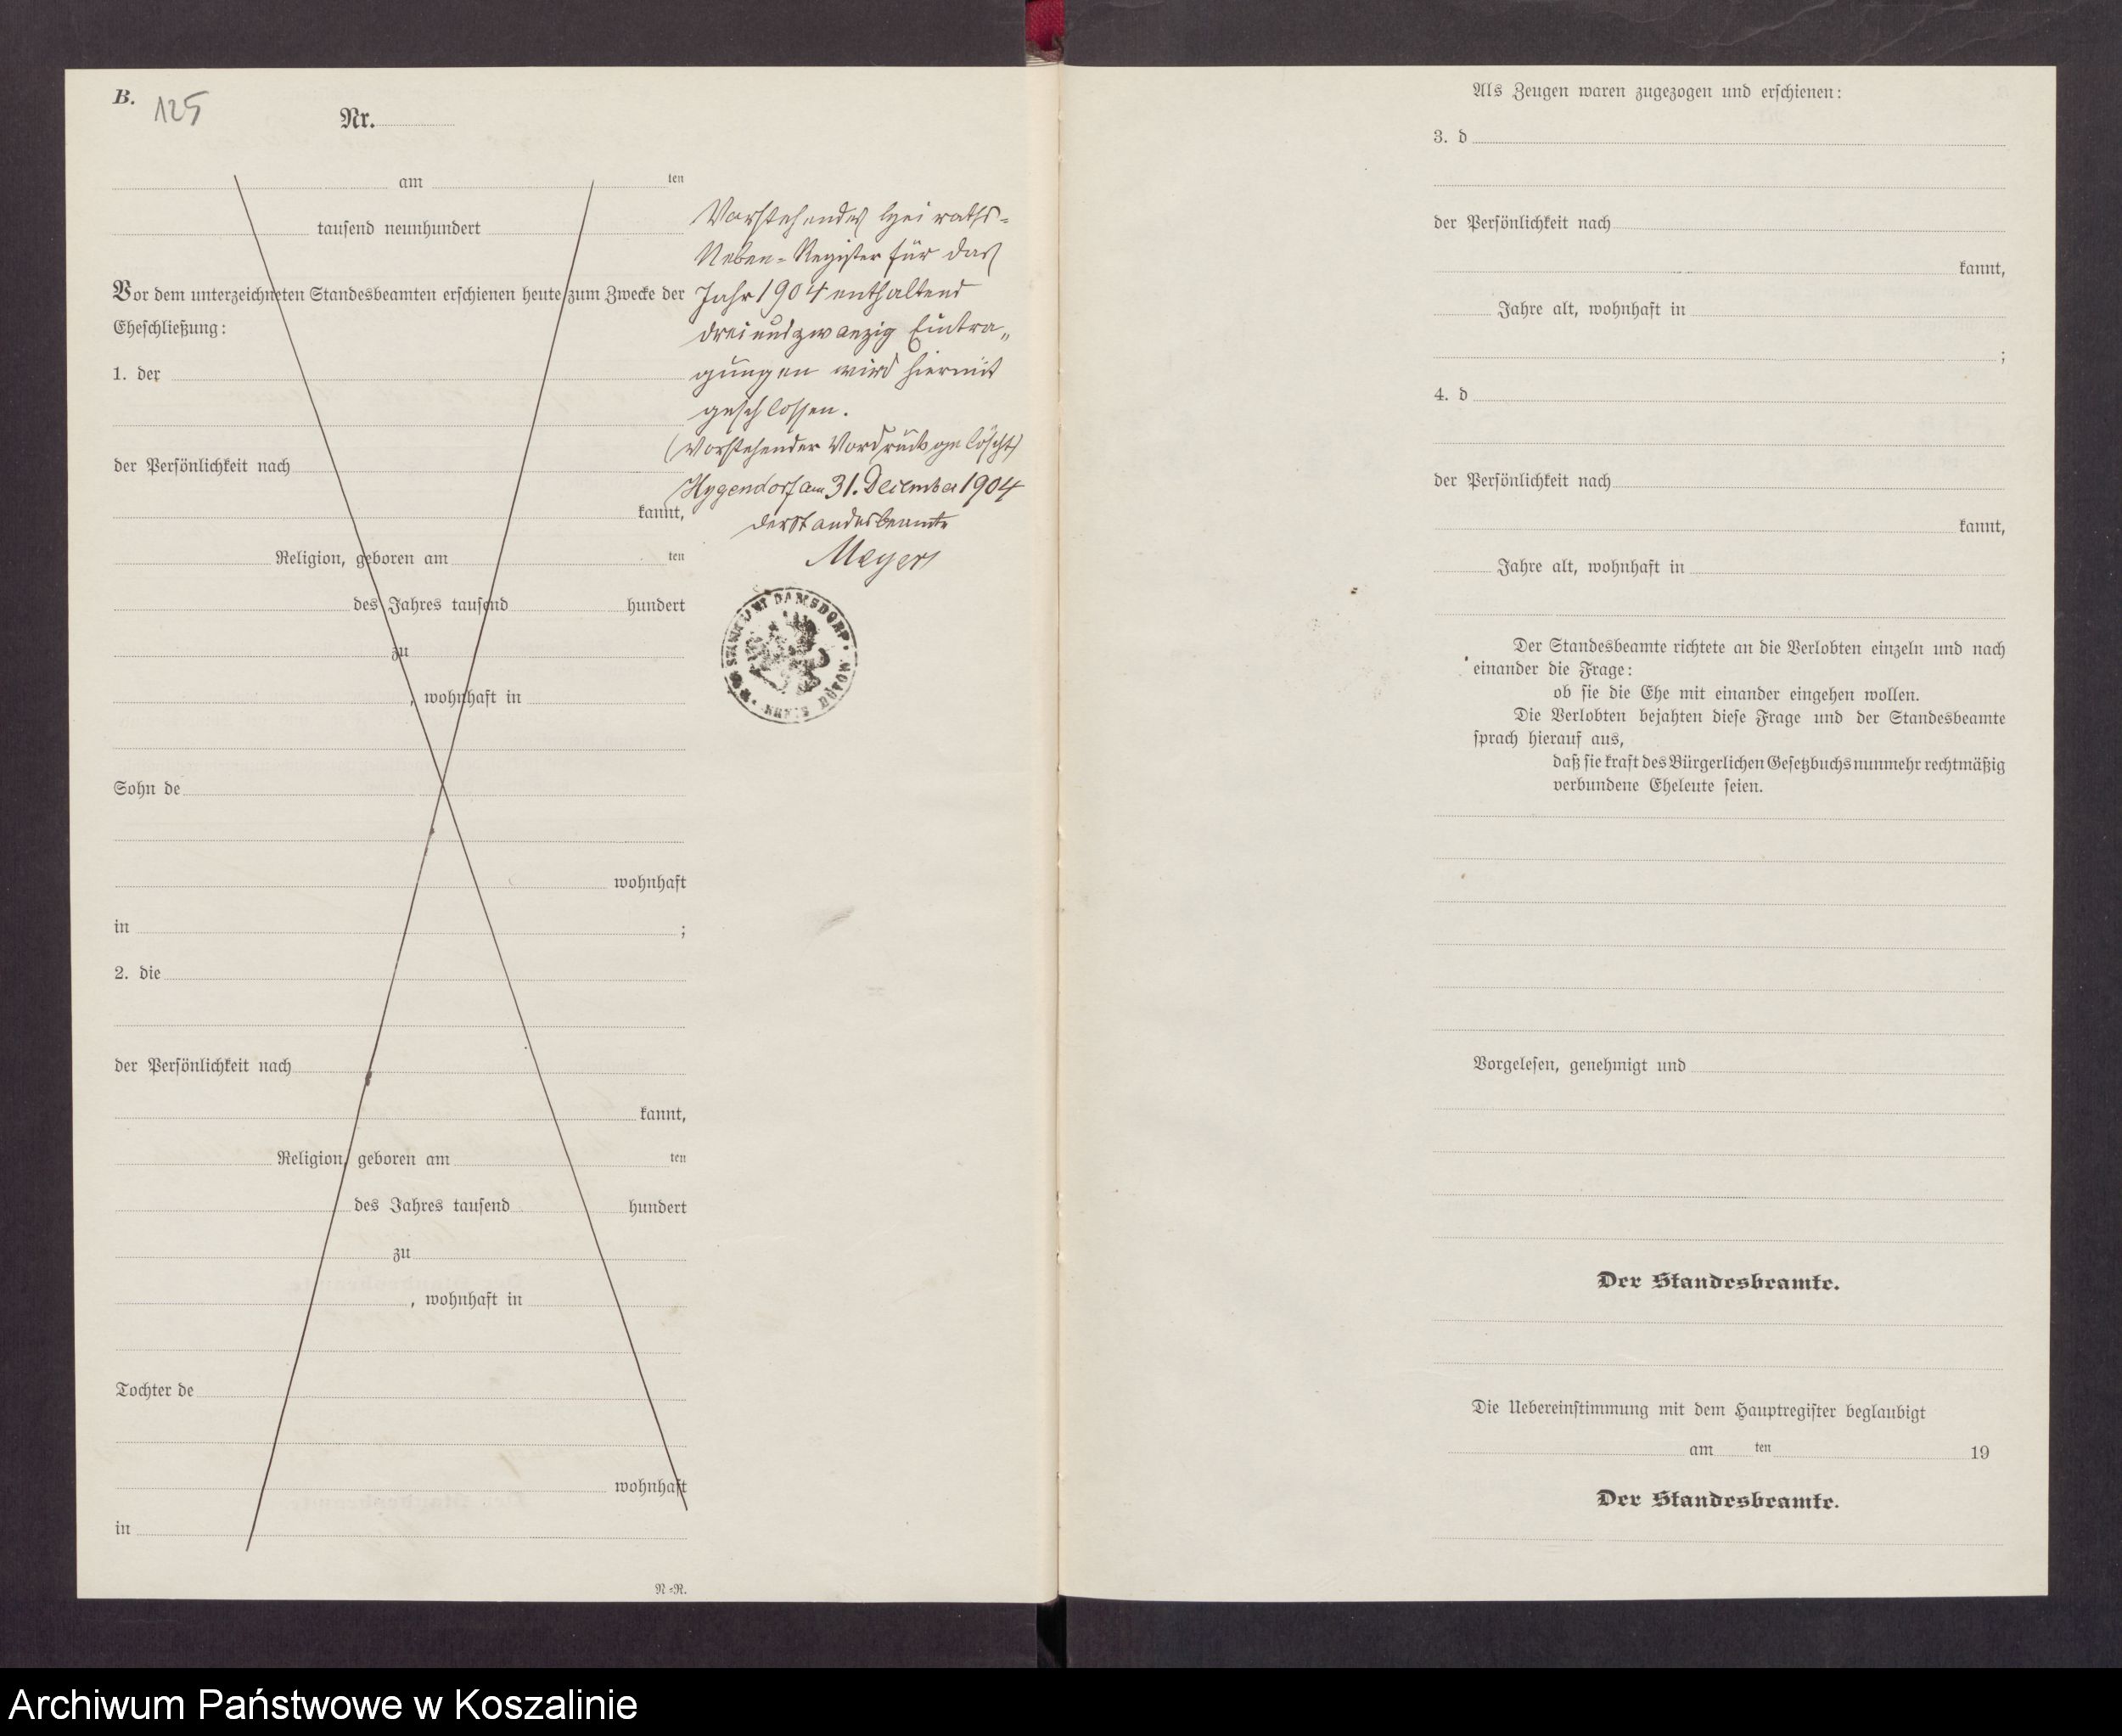 B.
125
Nr.
am ten
tausend neunhundert
Vor dem unterzeichneten Standesbeamten erschienen heute zum Zwecke der
Eheschließung:
1. der
der Persönlichkeit nach
kannt,
Religion, geboren am ten
des Jahres tausend hundert
zu
, wohnhaft in
Sohn de
wohnhaft
in ;
2. die
der Persönlichkeit nach
kannt,
Religion, geboren am ten
des Jahres tausend hundert
zu
, wohnhaft in
Tochter de
wohnhaft
in
N=R.
Vorstehendes Heiraths-
Neben-Register für das
Jahr 1904 enthaltend
dreiundzwanzig Eintra„
gungen wird hiermit
geschlossen.
(Vorstehender Vordruck gelöscht)
am 31. December 1904
der Standesbeamte
Meyer
STANDESAMT DAMSDORF
Als Zeugen waren zugezogen und erschienen:
3. d
der Persönlichkeit nach
kannt,
Jahre alt, wohnhaft in
;
4. d
der Persönlichkeit nach
kannt,
Jahre alt, wohnhaft in
Der Standesbeamte richtete an die Verlobten einzeln und nach
einander die Frage:
ob sie die Ehe mit einander eingehen wollen.
Die Verlobten bejahten diese Frage und der Standesbeamte
sprach hierauf aus,
daß sie kraft des Bürgerlichen Gesetzbuchs nunmehr rechtmäßig
verbundene Eheleute seien.
Vorgelesen, genehmigt und
Der Standesbeamte.
Die Uebereinstimmung mit dem Hauptregister beglaubigt
am ten 19
Der Standesbeamte.
Archiwum Państwowe w Koszalinie